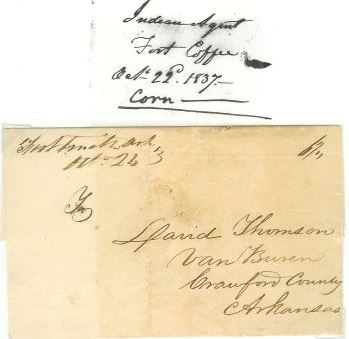 Indean Agent
Fort Coffee
Oct. 22d. 1837
Corn
Fort Smith Ark
Oct. 24
To
David Thomson
Van Buren
Crauford County
Arkansas